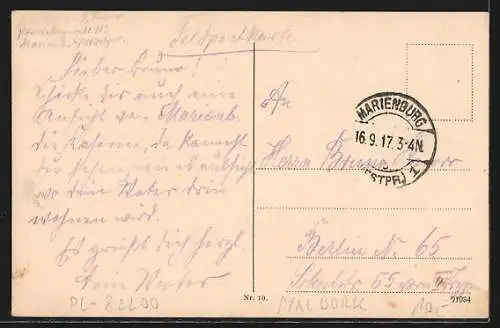 Feldpostkarte
Lieber Bruno!
Schicke dir auch eine
Ansicht von Marienb.
die Kaserne, da kannst
du sehen, wie es aussieht
wo dein Vater drin
wohnen wird.
Es grüßt dich herzl.
Dein Vater
An
Herrn Bruno
Berlin N. 65
65
MARIENBURG
16.9.17.3-4N.
(WESTPR.) 1
PL-82200
MALBORK
10.-
Nr. 10.
91984